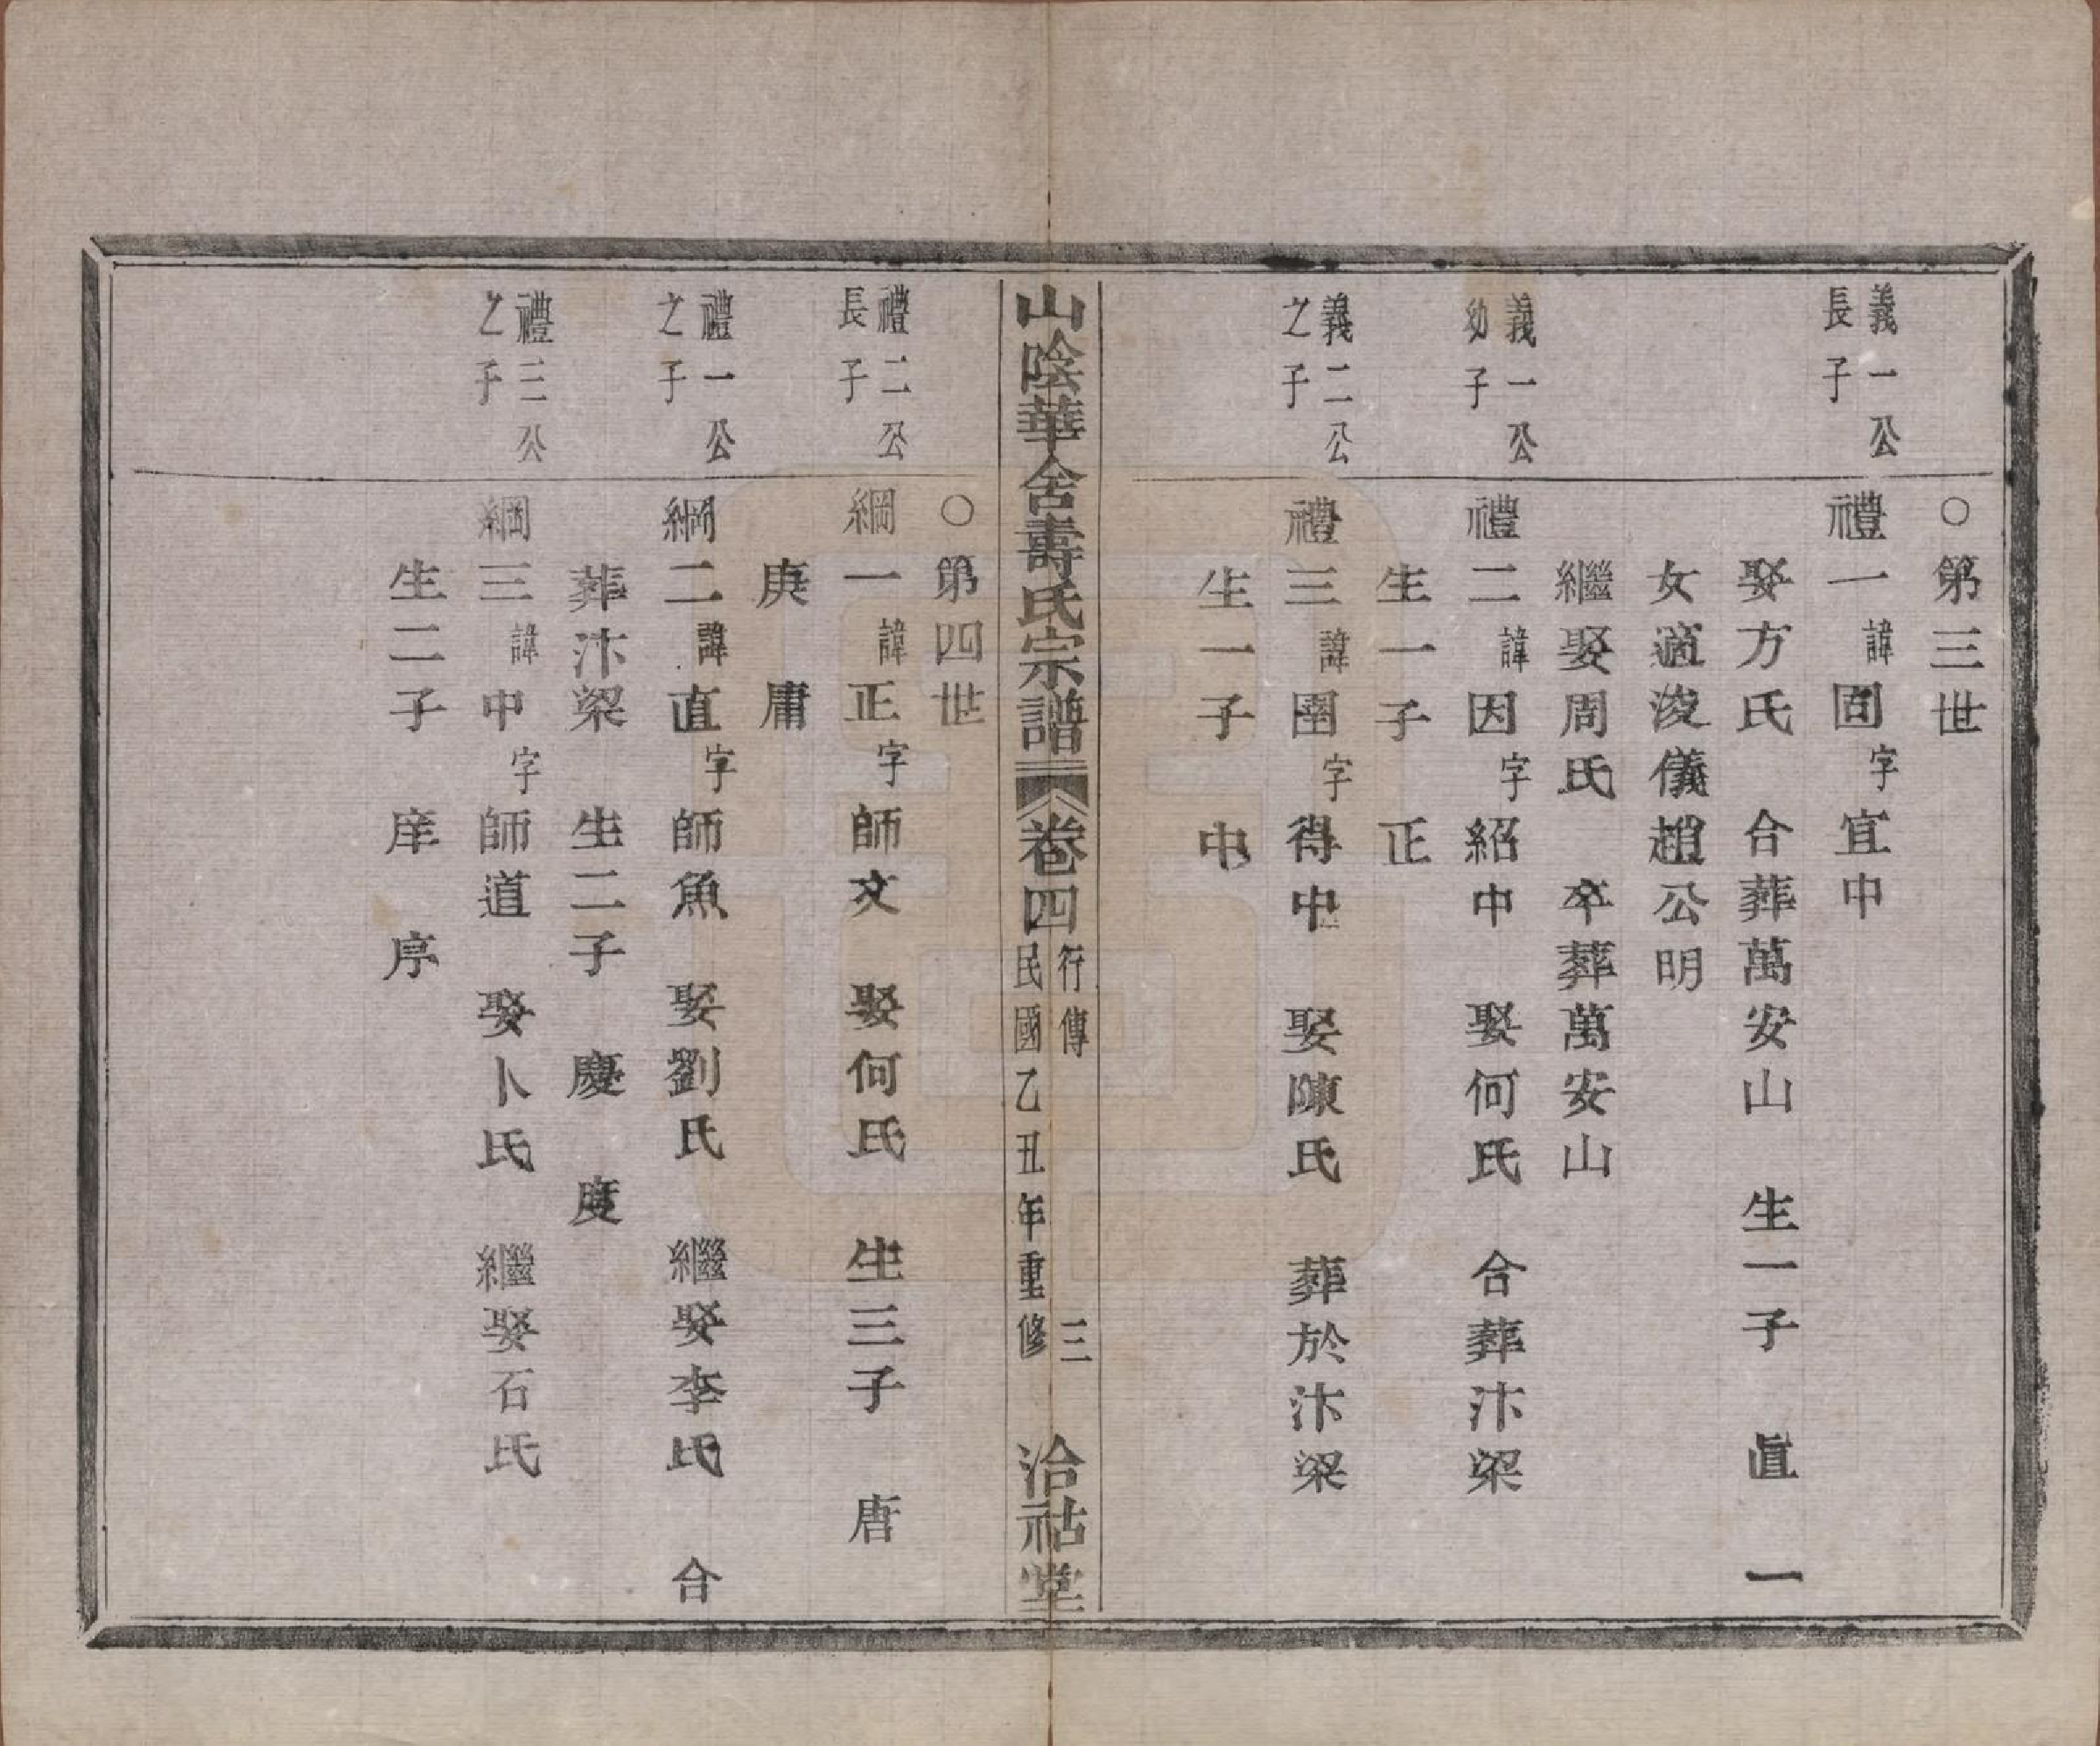 ○第三世
義一公
長子
禮一諱固字宜中
娶方氏　合葬萬安山　生一子　眞　一
女適浚儀趙公明
繼娶周氏　卒葬萬安山
義一公
幼子
禮二諱因字紹中　娶何氏　合葬汴梁
生一子　正
義二公
之子
禮三諱圉字得中　娶陳氏　葬於汴梁
生一子　中
山陰華舍壽氏宗譜 卷四
行傳　三
民國乙丑年重修
洽祜堂
○第四世
禮二公
長子
綱一諱正字師文　娶何氏　生三子　唐
庚　庸
禮一公
之子
綱二諱直字師魚　娶劉氏　繼娶李氏　合
葬汴梁　生二子　慶　度
禮三公
之子
綱三諱中字師道　娶卜氏　繼娶石氏
生二子　庠　序